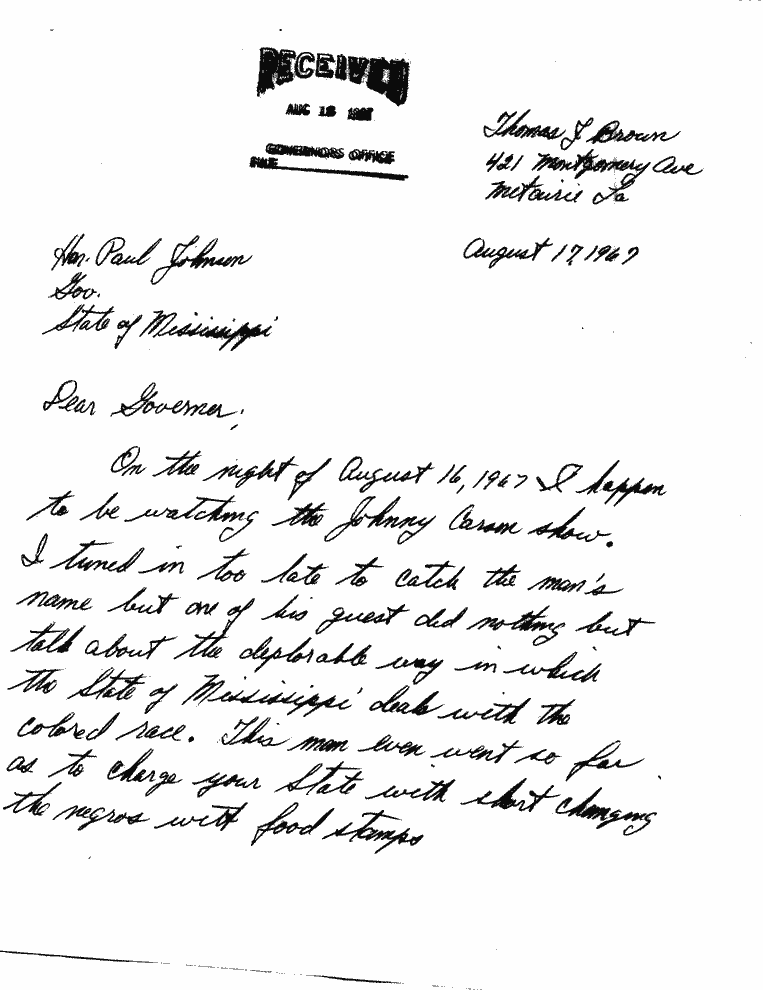 RECEIVED
AUG 18 1967
GOVERNORS OFFICE
FILE
Thomas J Brown
421 Montgomery Ave
Metairie La
August 17, 1967
Hon. Paul Johnson
Gov.
State of Mississippi
Dear Governer;
On the night of August 16, 1967 I happen
to be watching the Johnny Carson show.
I tuned in too late to catch the man's
name but one of his guest did nothing but
talk about the deplorable way in which
the State of Mississippi deals with the
colored race. This man even went so far
as to charge your State with short changing
the negros with food stamps